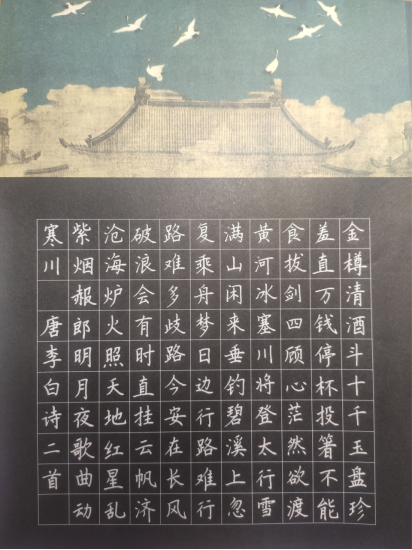 金樽清酒斗十千玉盘珍
羞直万钱停杯投箸不能
食拔剑四顾心茫然欲渡
黄河冰塞川将登太行雪
满山闲来垂钓碧溪上忽
复乘舟梦日边行路难行
路难多歧路今安在长风
破浪会有时直挂云帆济
沧海炉火照天地红星乱
紫烟赧郎明月夜歌曲动
寒川 唐李白诗二首